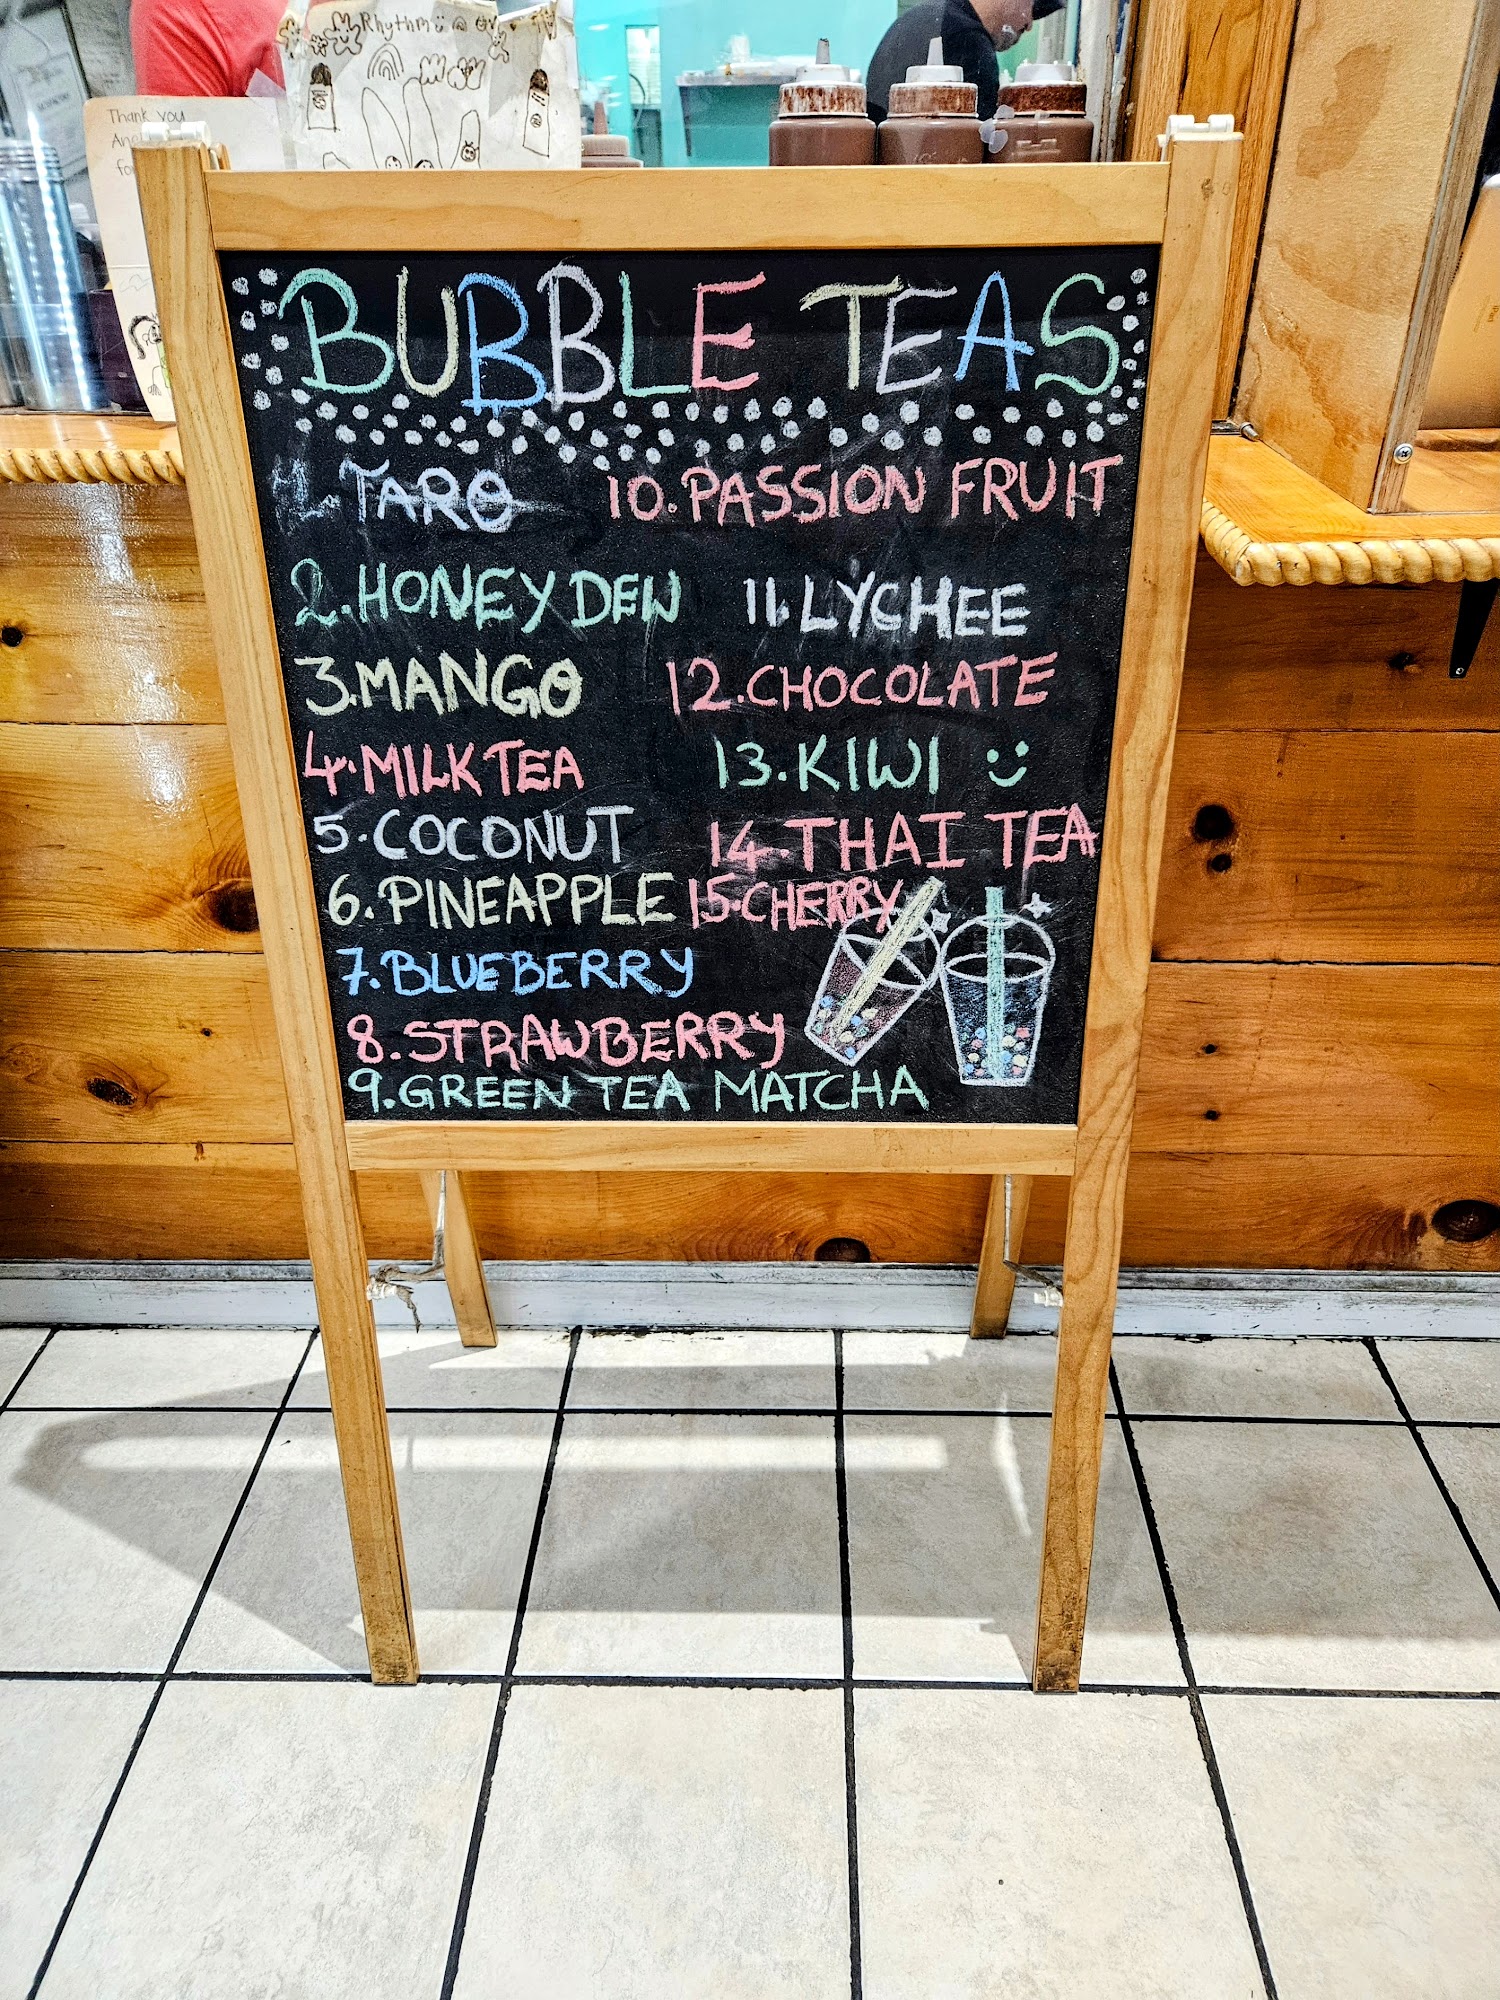 Rhythm
Thank you
BUBBLE TEAS
1. TARO
2. HONEYDEW
3. MANGO
4. MILK TEA
5. COCONUT
6. PINEAPPLE
7. BLUEBERRY
8. STRAWBERRY
9. GREEN TEA MATCHA
10. PASSION FRUIT
11. LYCHEE
12. CHOCOLATE
13. KIWI
14. THAI TEA
15. CHERRY